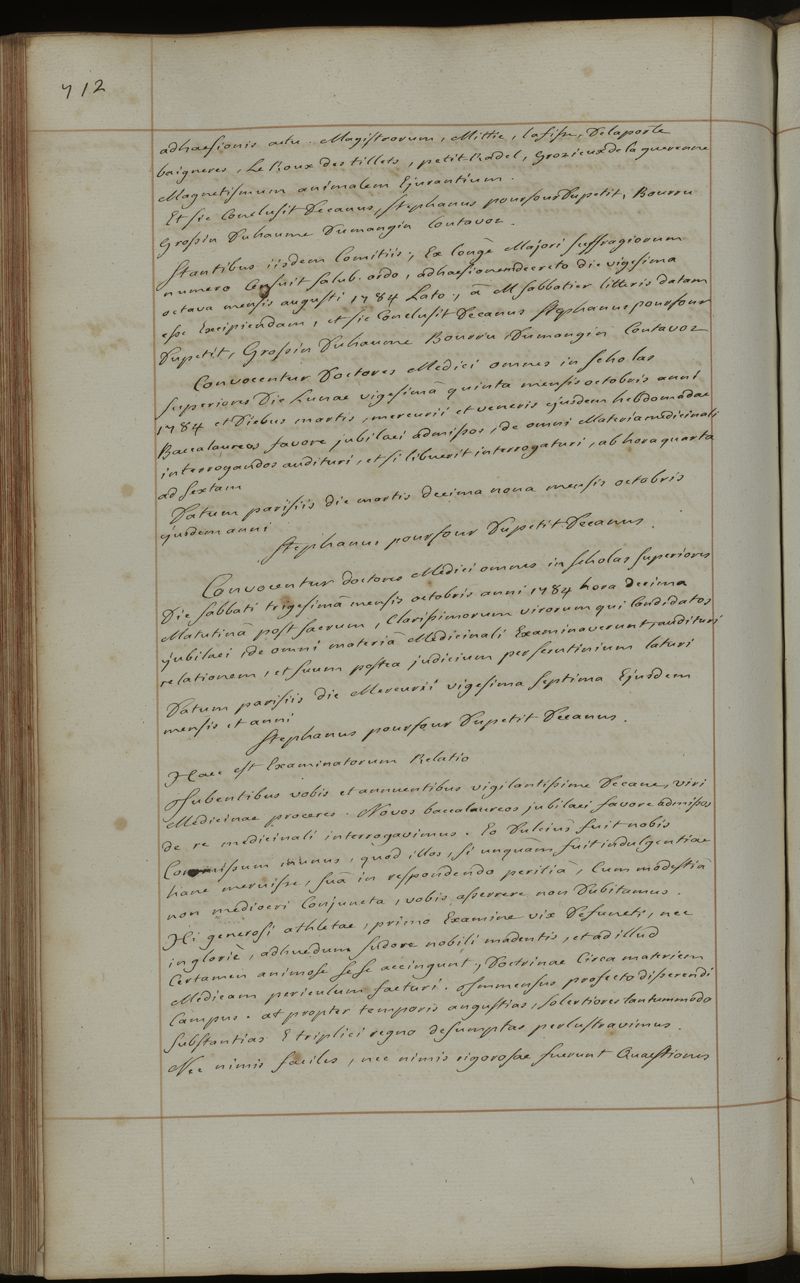 712
adhaesionis actu. Magistrorum, Mittie, lafisse, Delaporte
baigneres, Le Roux des tillets, petit Radel, Grozieux de la guerenne
Magnetismum animalem Ejurantium.
Et sic Conclusit Decanus, Stephanus pourfour Dupetit, Bourru
Grossin Duhaume Dumangin Coutavoz.
Stantibus iisdem Comitiis; Ex longè Majori suffragiorum
numero Censuit salub. ordo, adhaesionem decreto die vigesima
octava mensis augusti 1784 Lato, à M sabbatier litteris datam
esse Excipiendam, et sic Conclusit Decanus Stephanus pourfour
Dupetit, Grossin Duhaume Bourru Dumangin Coutavoz
Convocentur Doctores Medici omnes in scholas
superiores Die Lunae vigesimâ quinta mensis octobris anni
1784 et Diebus martis, mercurii et veneris ejusdem hebdomadae
Baccalaureos favore jubilaei admissos, de omni Materia medicinali
interrogandos audituri, et si libuerit interrogaturi, ab hora quarta
ad sextam
Datum parisiis die martis decima nona mensis octobris
ejusdem anni
Stephanus pourfour Dupetit Decanus.
Convocentur doctores Medici omnes in scholas superiores
Die sabbati trigesimâ mensis octobris anni 1784 hora decima
Matutinâ post sacrum, Clarissimorum virorum qui Candidatos
jubilaei de omni materiâ Medicinali Examinaverunt, audituri
relationem, et suum postea judicium per scrutinium laturi
Datum parisiis die Mercurii vigesima septima Ejusdem
mensis et anni
Stephanus pourfour Dupetit Decanus.
Haec est Examinatorum Relatio
Jubentibus vobis et annuentibus vigilantissime Decane, viri
Medicinae proceres. Novos baccalaureos jubilaei favore admissos
de re medicinali interrogavimus. Eo Dulcius fuit nobis
Commissum munus, quod illos, si unquàm fuit indulgentiae
hanc meruisse, suâ in respondendo peritiâ, Cum modestiâ
non mediocri Conjuncta, vobis asserere non Dubitamus.
Hi generosi athletae, primo Examine vix Defuncti, nec
ingloriè, adhucdum sudore nobili madentis, et ad illud
Certamen animose sese accingunt, Doctrinae Circa materiem
Medicam periculum facturi. Immensus profecto disserendi
Campus. at propter temporis angustias, solertiores tantummodo
substantias E triplici regno desumptas perlustravimus.
Nec nimis faciles, nec nimis rigorosae fuerunt Quaestiones